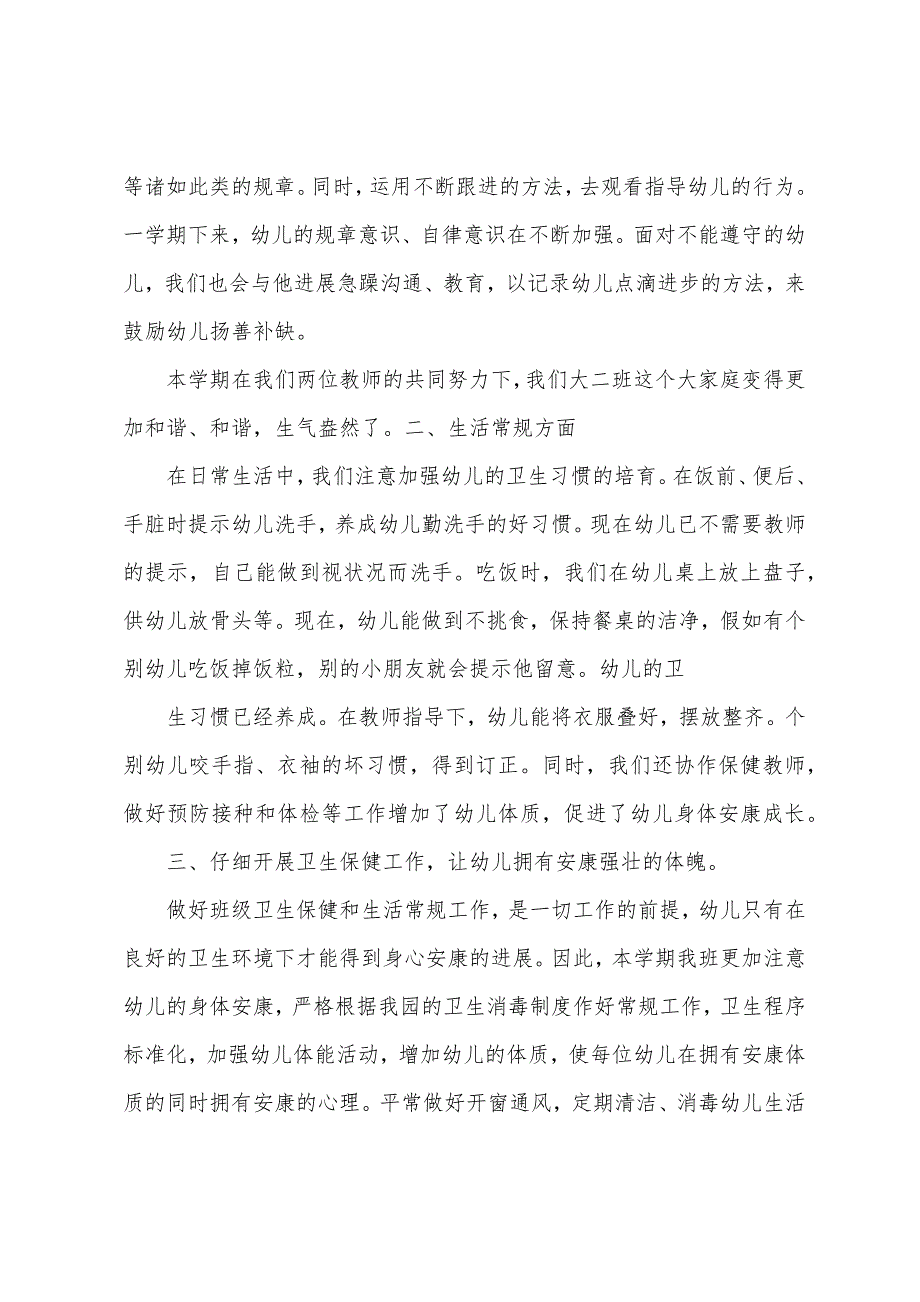 等诸如此类的规章。同时，运用不断跟进的方法，去观看指导幼儿的行为。
一学期下来，幼儿的规章意识、自律意识在不断加强。面对不能遵守的幼
儿，我们也会与他进展急躁沟通、教育，以记录幼儿点滴进步的方法，来
鼓励幼儿扬善补缺。
本学期在我们两位教师的共同努力下，我们大二班这个大家庭变得更
加和谐、和谐，生气盎然了。二、生活常规方面
在日常生活中，我们注意加强幼儿的卫生习惯的培育。在饭前、便后、
手脏时提示幼儿洗手，养成幼儿勤洗手的好习惯。现在幼儿已不需要教师
的提示，自己能做到视状况而洗手。吃饭时，我们在幼儿桌上放上盘子，
供幼儿放骨头等。现在，幼儿能做到不挑食，保持餐桌的洁净，假如有个
别幼儿吃饭掉饭粒，别的小朋友就会提示他留意。幼儿的卫
生习惯已经养成。在教师指导下，幼儿能将衣服叠好，摆放整齐。个
别幼儿咬手指、衣袖的坏习惯，得到订正。同时，我们还协作保健教师，
做好预防接种和体检等工作增加了幼儿体质，促进了幼儿身体安康成长。
三、仔细开展卫生保健工作，让幼儿拥有安康强壮的体魄。
做好班级卫生保健和生活常规工作，是一切工作的前提，幼儿只有在
良好的卫生环境下才能得到身心安康的进展。因此，本学期我班更加注意
幼儿的身体安康，严格根据我园的卫生消毒制度作好常规工作，卫生程序
标准化，加强幼儿体能活动，增加幼儿的体质，使每位幼儿在拥有安康体
质的同时拥有安康的心理。平常做好开窗通风，定期清洁、消毒幼儿生活